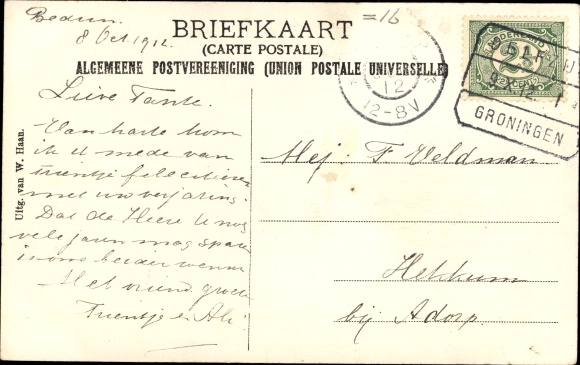 Bedum.
8 Oct. 1912.
=16
BRIEFKAART
(CARTE POSTALE)
ALGEMEENE POSTVEREENIGING (UNION POSTALE UNIVERSELLE)
12
12-8V
NEDERLAND
2½
CENT
GRONINGEN
Uitg. van W. Haan.
Lieve Tante.
Van harte kom
ik u mede van
Trientje feliciteeren
met uw verjaring.
Dat de Heere U nog
vele jaren mag sparen
is ons beider wensch
Met vriend. groet
Trientje en Ali.
Mej: F. Veldman
Hekkum
bij Adorp.